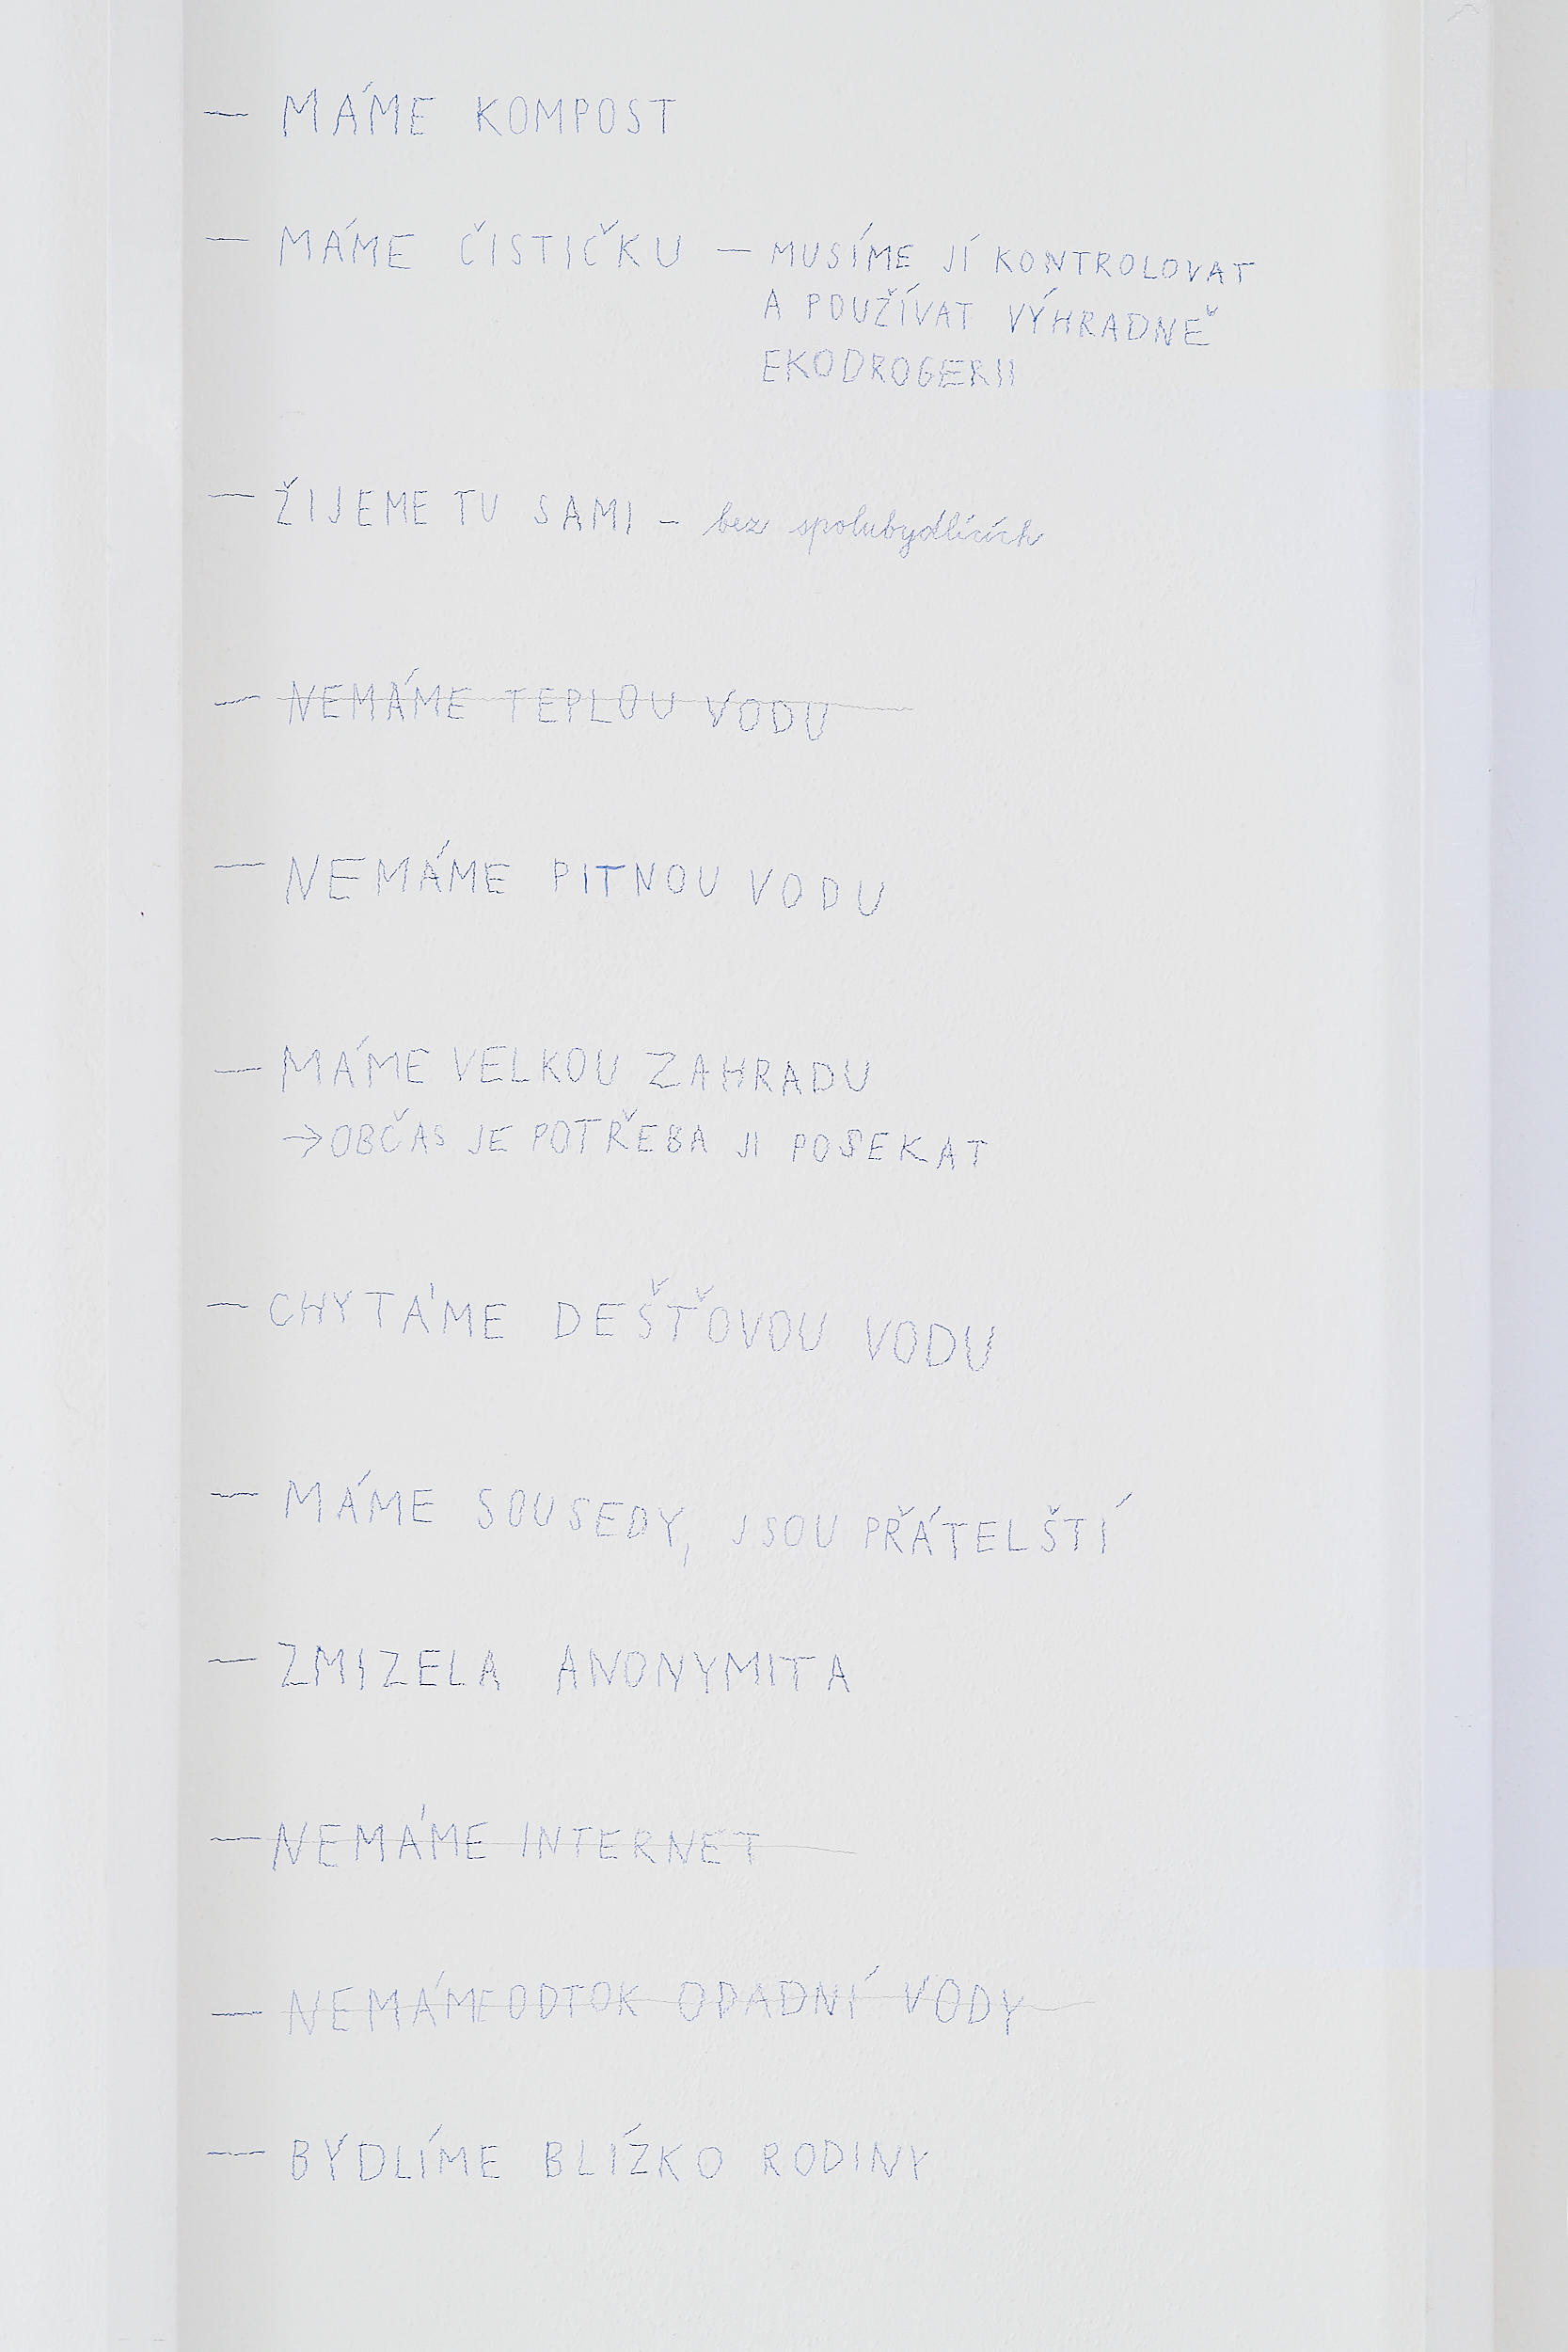 — MÁME KOMPOST
— MÁME ČISTIČKU — MUSÍME JÍ KONTROLOVAT
A POUŽÍVAT VÝHRADNĚ
EKODROGERII
— ŽIJEME TU SAMI – bez spolubydlících
— NEMÁME TEPLOU VODU
— NEMÁME PITNOU VODU
— MÁME VELKOU ZAHRADU
→ OBČAS JE POTŘEBA JI POSEKAT
— CHYTÁME DEŠŤOVOU VODU
— MÁME SOUSEDY, JSOU PŘÁTELŠTÍ
— ZMIZELA ANONYMITA
— NEMÁME INTERNET
— NEMÁME ODTOK ODADNÍ VODY
— BÝDLÍME BLÍZKO RODINY